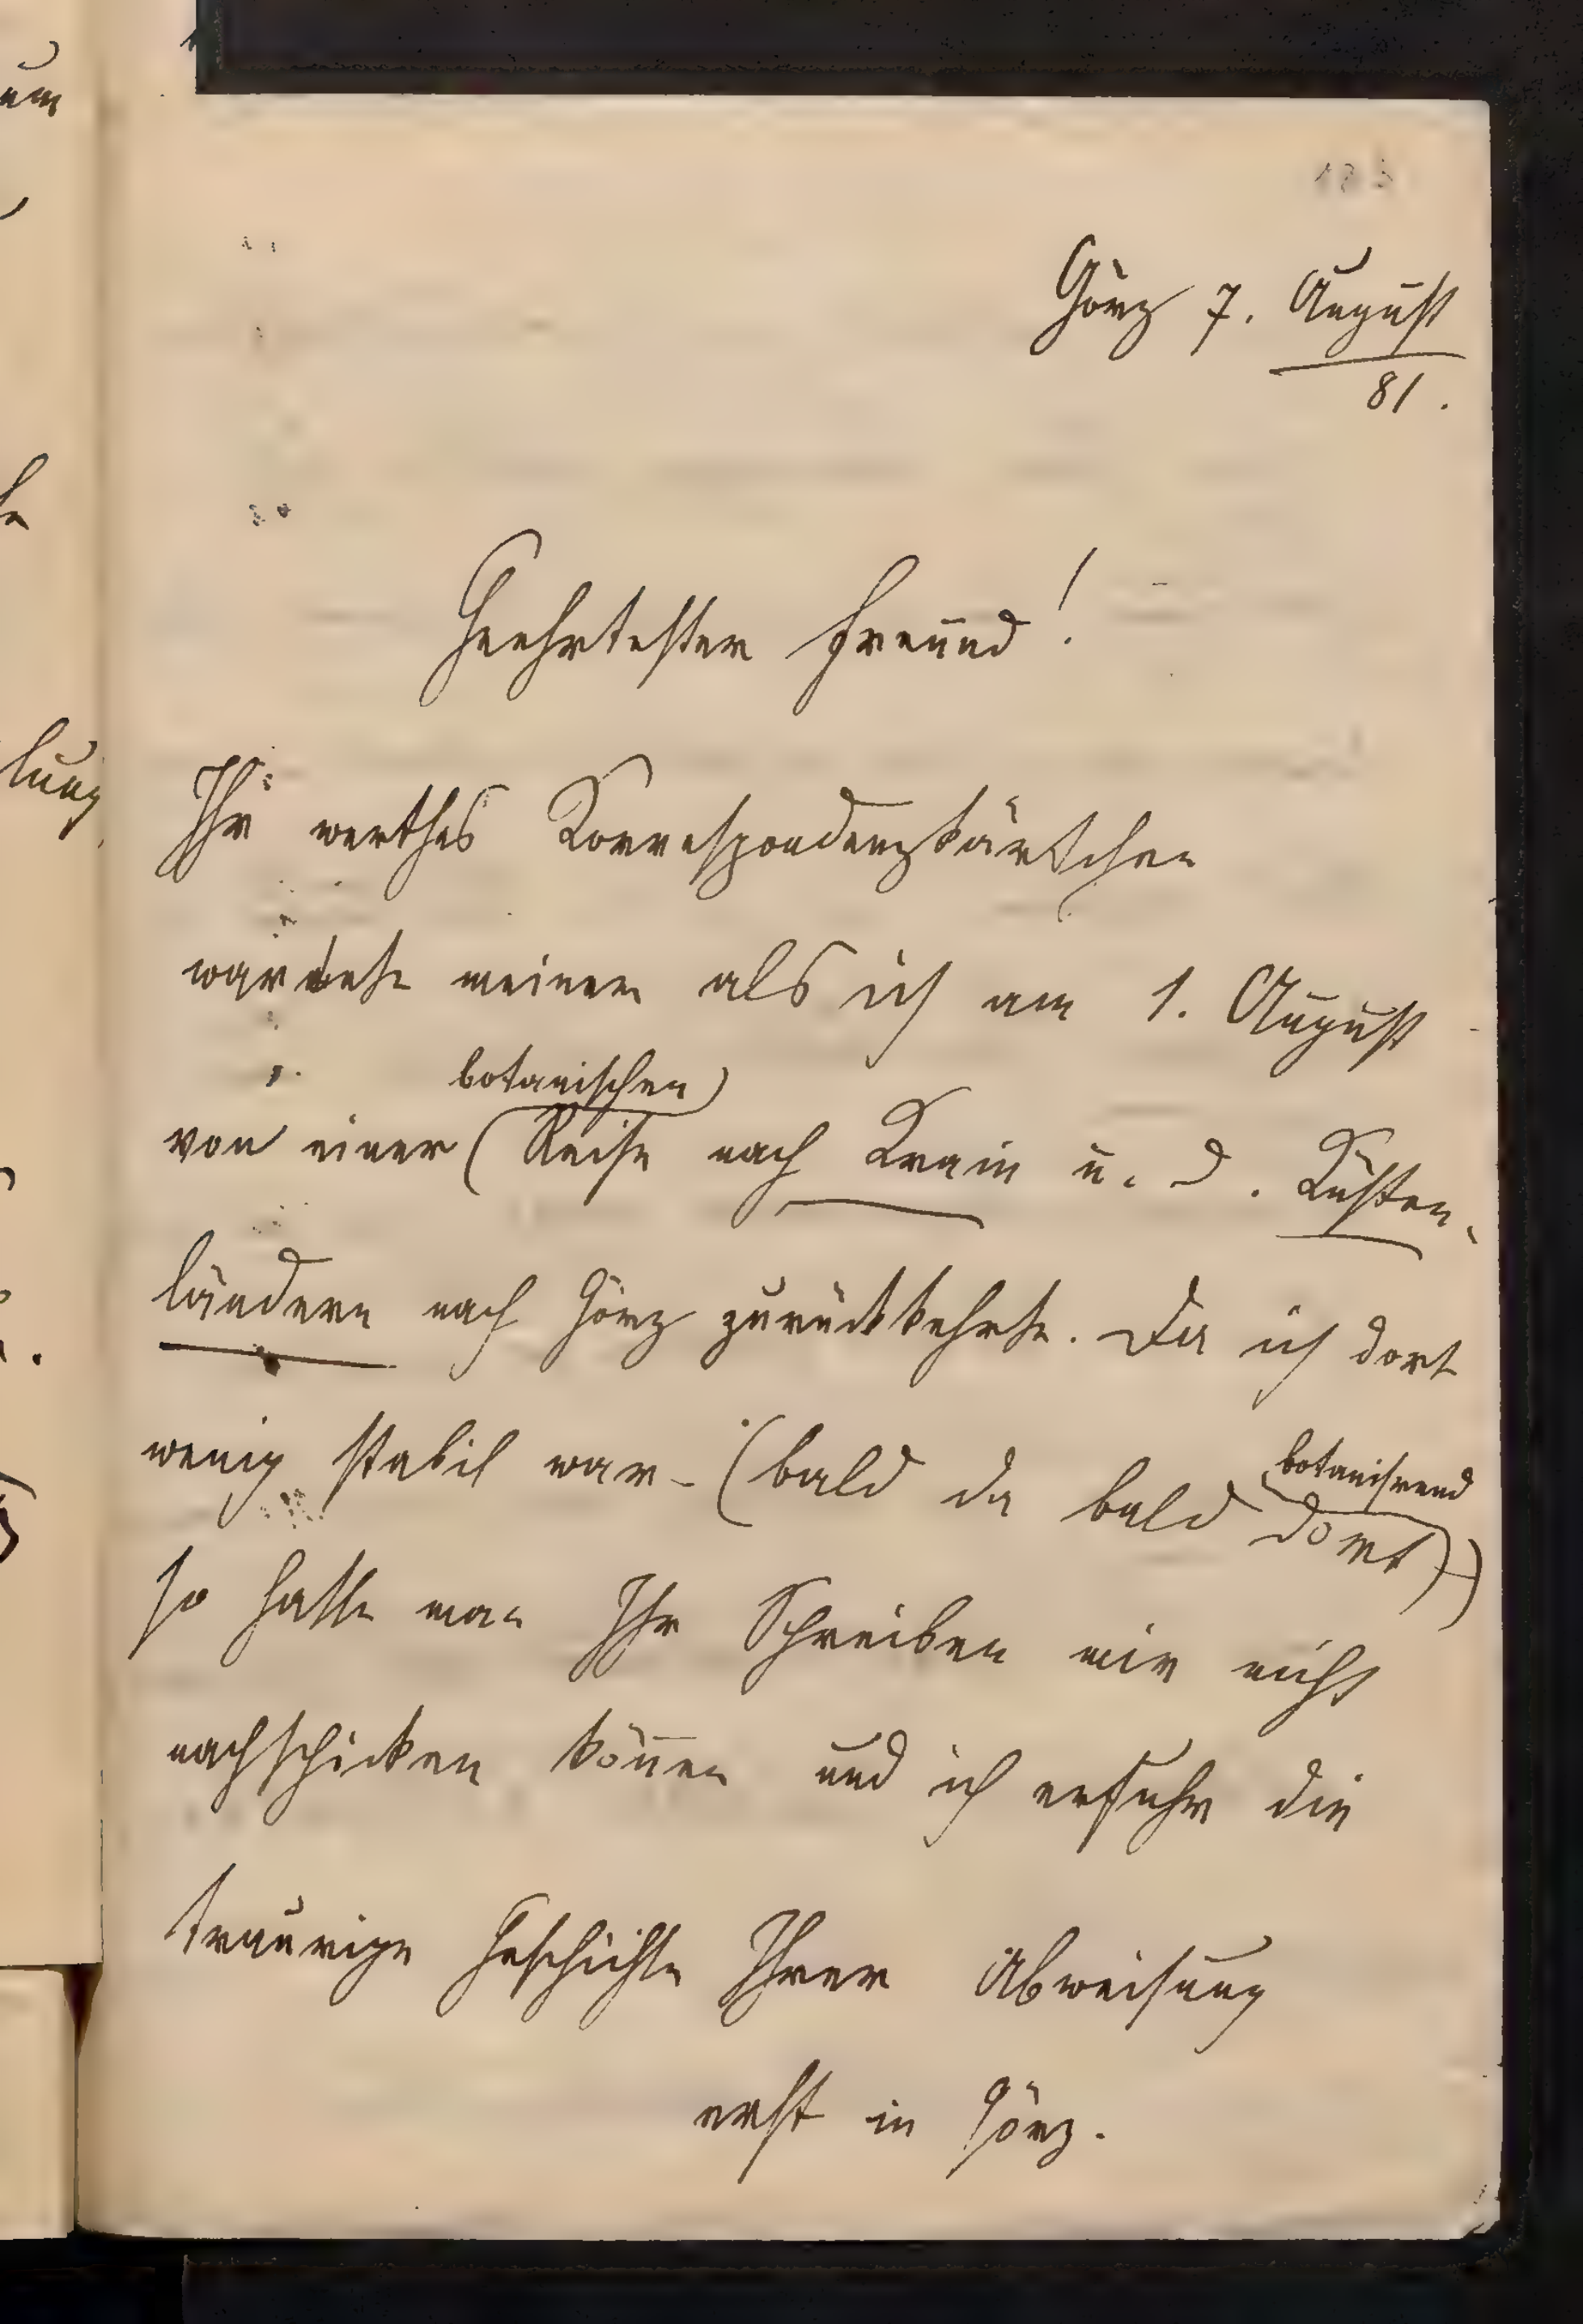 Görz 7. August
81.
Geehrtester Freund!
Ihr werthes Korrespondenzkärtchen
wartete meiner als ich am 1. August
botanischen)
von einer (Reise nach Krain u. d. Küsten-
ländern nach Görz zurückkehrte. Da ich dort
botanisirend
wenig stabil war – (bald da bald dort))
so hatte man Ihr Schreiben mir nicht
nachschicken können und ich erfuhr die
traurige Geschichte Ihrer Abweisung
erst in Görz.